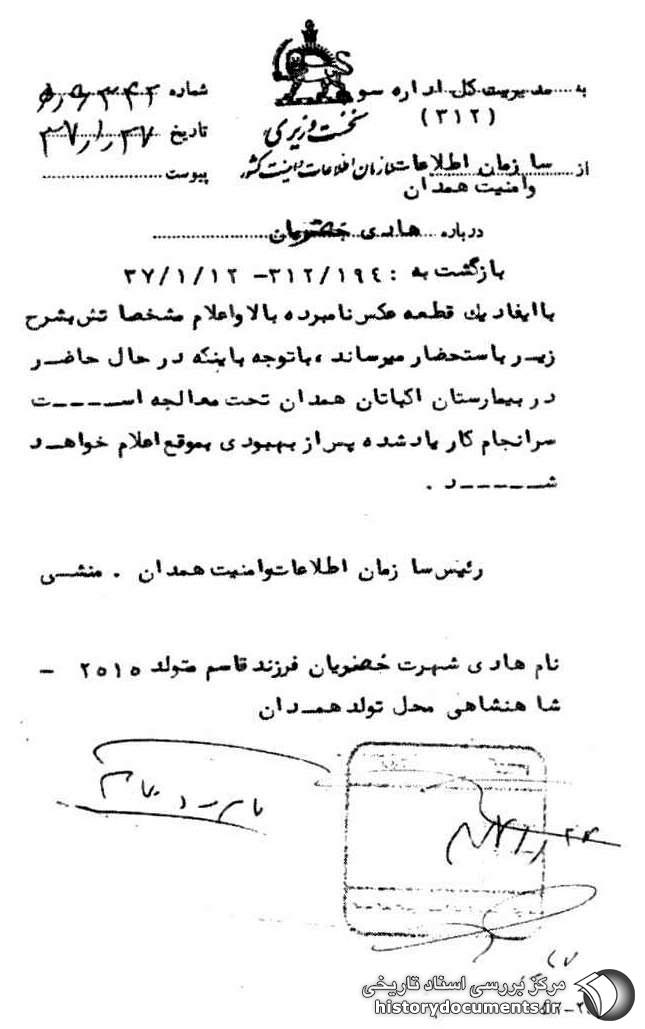 به مدیریت کل اداره سوم
(۳۱۲)
نخست وزیری
سازمان اطلاعات و امنیت کشور
از سازمان اطلاعات
وامنیت همدان
شماره
تاریخ ۳۷/۱/۲۷
پیوست
درباره هادی خضریان
بازگشت به : ۳۱۲/۱۹۴ -۳۷/۱/۱۲
باایفاد یك قطعه عکس نامبرده بالا واعلام مشخصا تش بشرح
زیر باستحضار میرساند ، باتوجه باینکه در حال حاضر
در بیمارستان اکباتان همدان تحت معالجه است
سرانجام کار یادشده پس از بهبودی بموقع اعلام خواهد
شد .
رئیس سا زمان اطلاعات وامنیت همدان . منشی
نام هادی شهرت خضریان فرزند قاسم متولد ۲۵۱۵ -
شا هنشاهی محل تولد همدان
مرکز بررسی اسناد تاریخی
historydocuments.ir